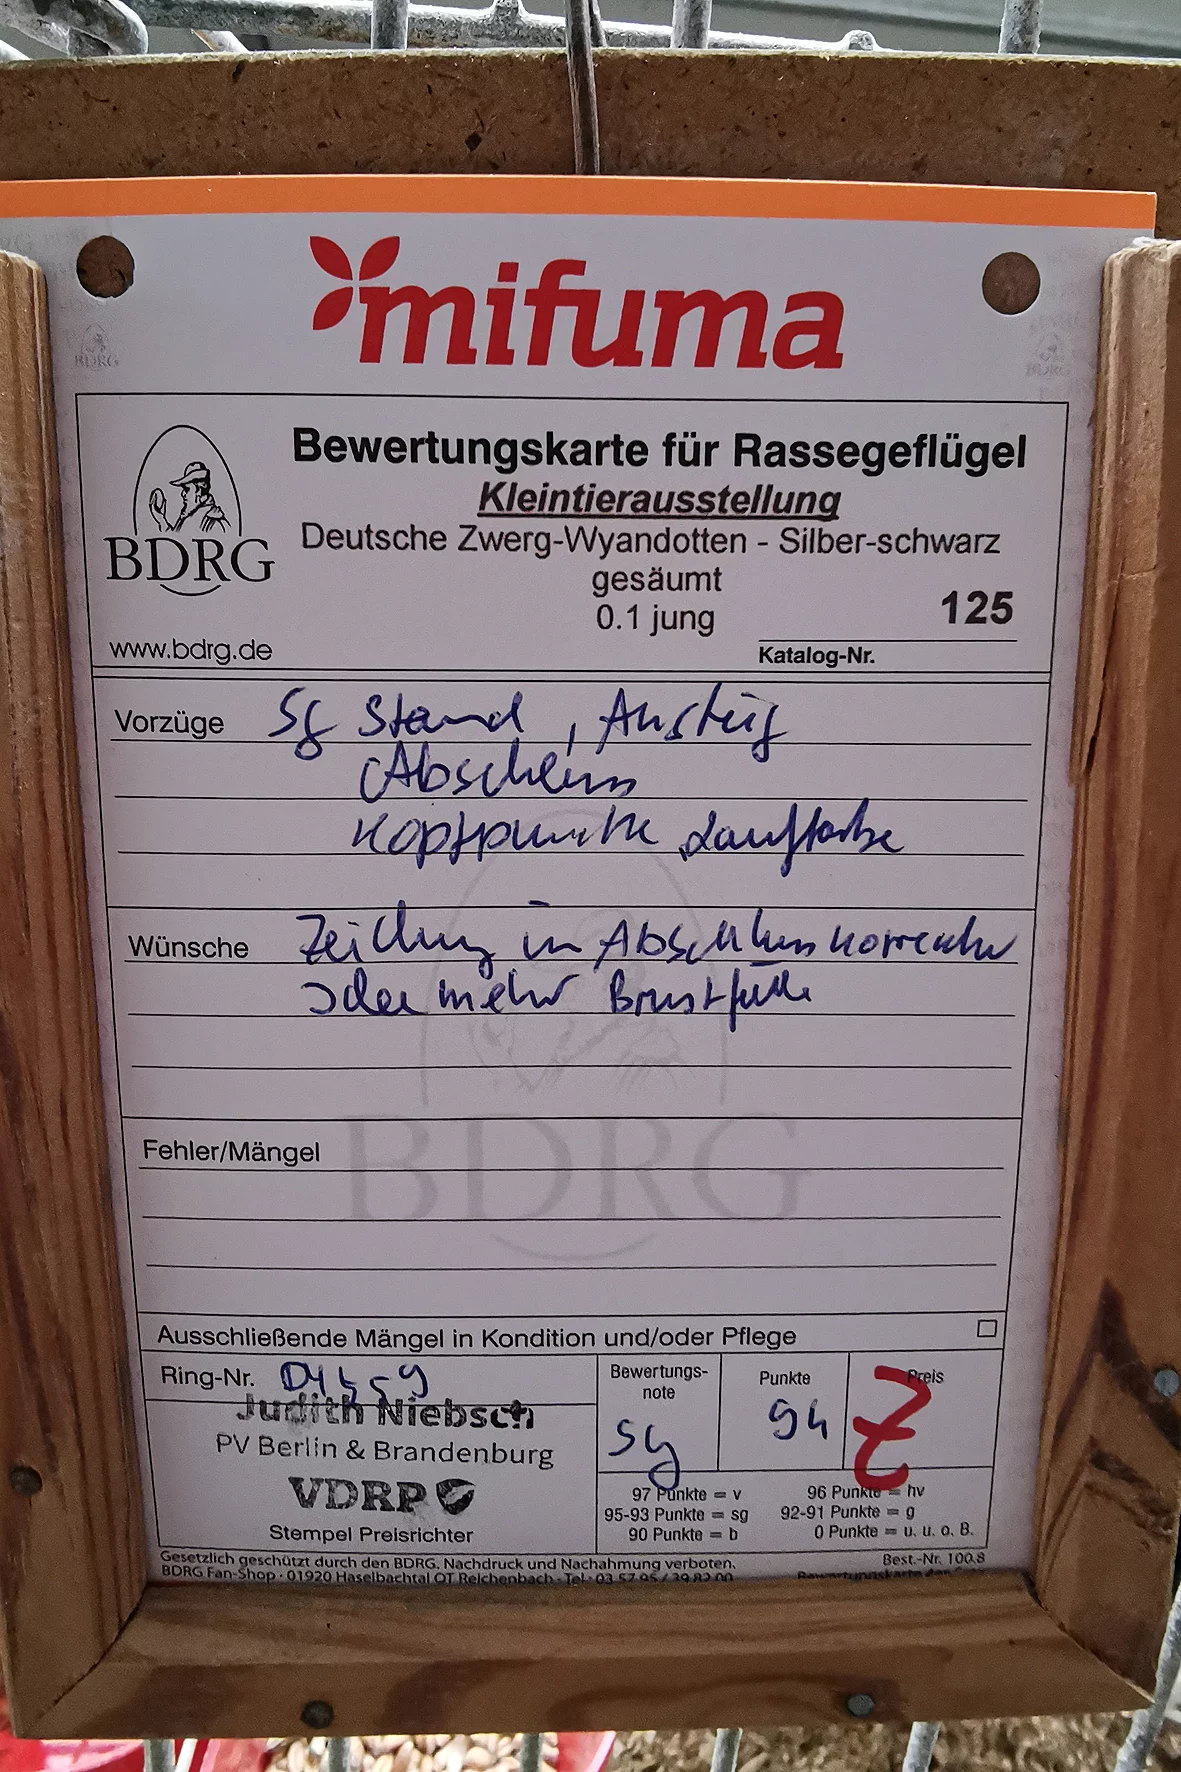 mifuma
BDRG
BDRG
Bewertungskarte für Rassegeflügel
Kleintierausstellung
Deutsche Zwerg-Wyandotten - Silber-schwarz
gesäumt
0.1 jung
125
BDRG
www.bdrg.de
Katalog-Nr.
Vorzüge Sg Stand, Anstieg
Abschluss
Kopfpunkte Lauffarbe
Wünsche Zeichnung in Abschluss korrekter
oder mehr Brustfülle
Fehler/Mängel
BDRG
Ausschließende Mängel in Kondition und/oder Pflege
Ring-Nr.
Judith Niebsch
PV Berlin & Brandenburg
VDRP
Stempel Preisrichter
Bewertungs-
note
sg
Punkte
94
Preis
Z
97 Punkte = v
96 Punkte = hv
95-93 Punkte = sg
92-91 Punkte = g
90 Punkte = b
0 Punkte = u. u. o. B.
Gesetzlich geschützt durch den BDRG. Nachdruck und Nachahmung verboten.
Best.-Nr. 100.8
BDRG Fan-Shop · 01920 Haselbachtal OT Reichenbach · Tel. 03 57 95 / 39 82 00